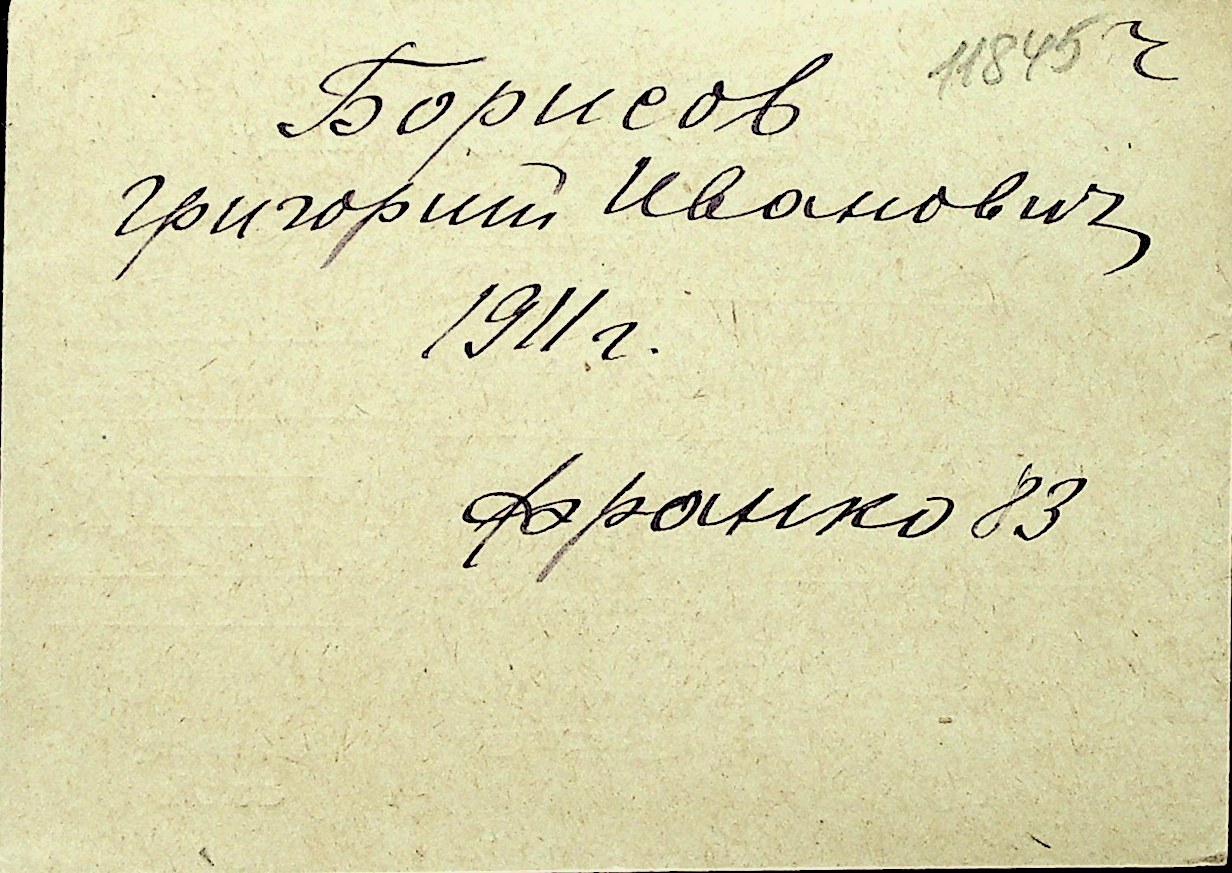 11845 ч
Борисов
Григорий Иванович
1911 г.
Франко 83